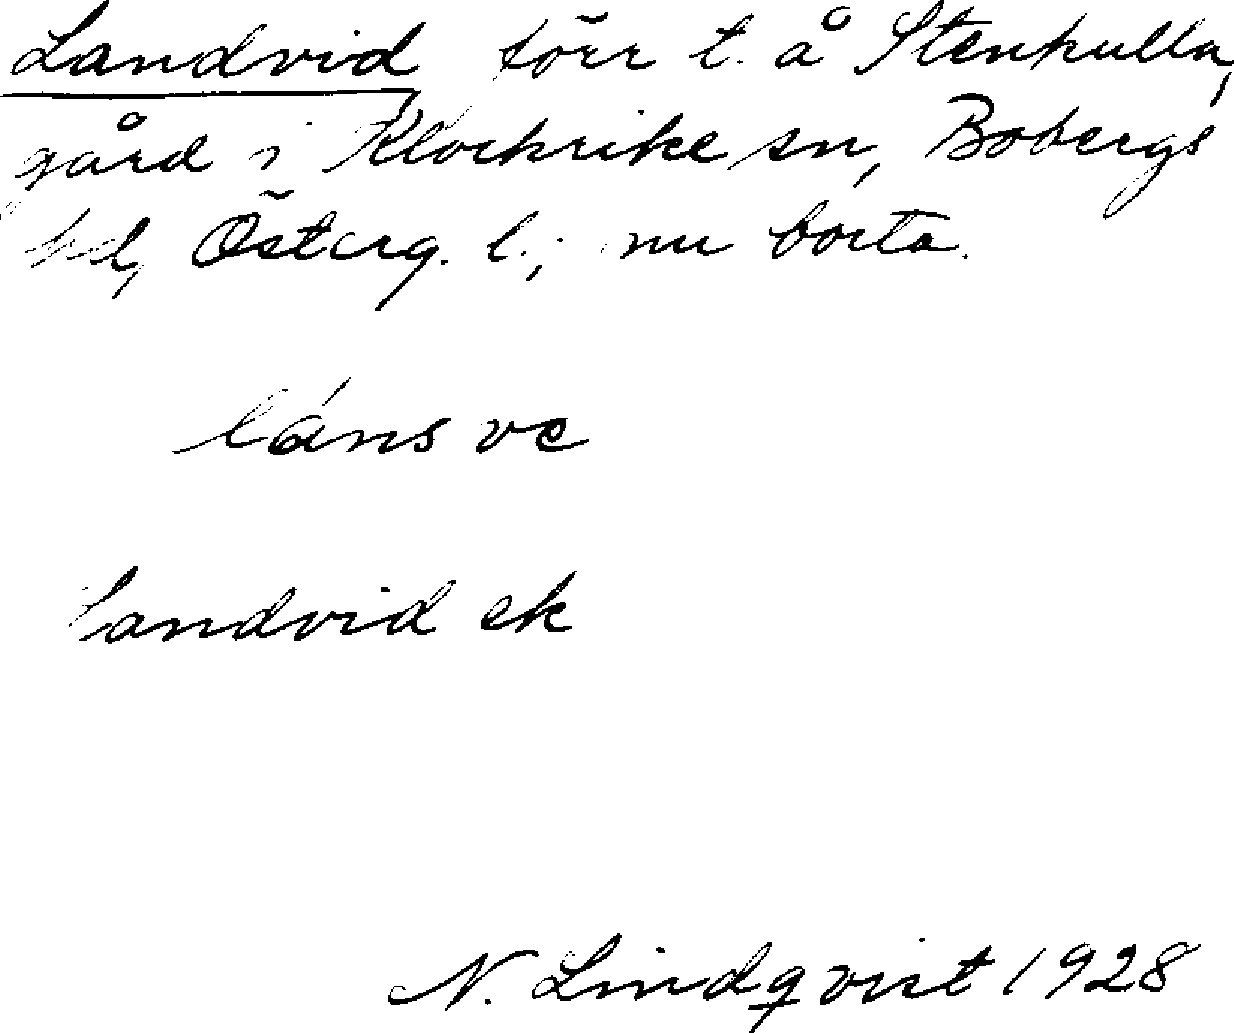 Landvid torr t. å Stenkulla,
gård i Klockrike sn, Bobergs
hd, Österg. l.; nu borta.
láns ve
Landvid ek
N. Lindqvist 1928